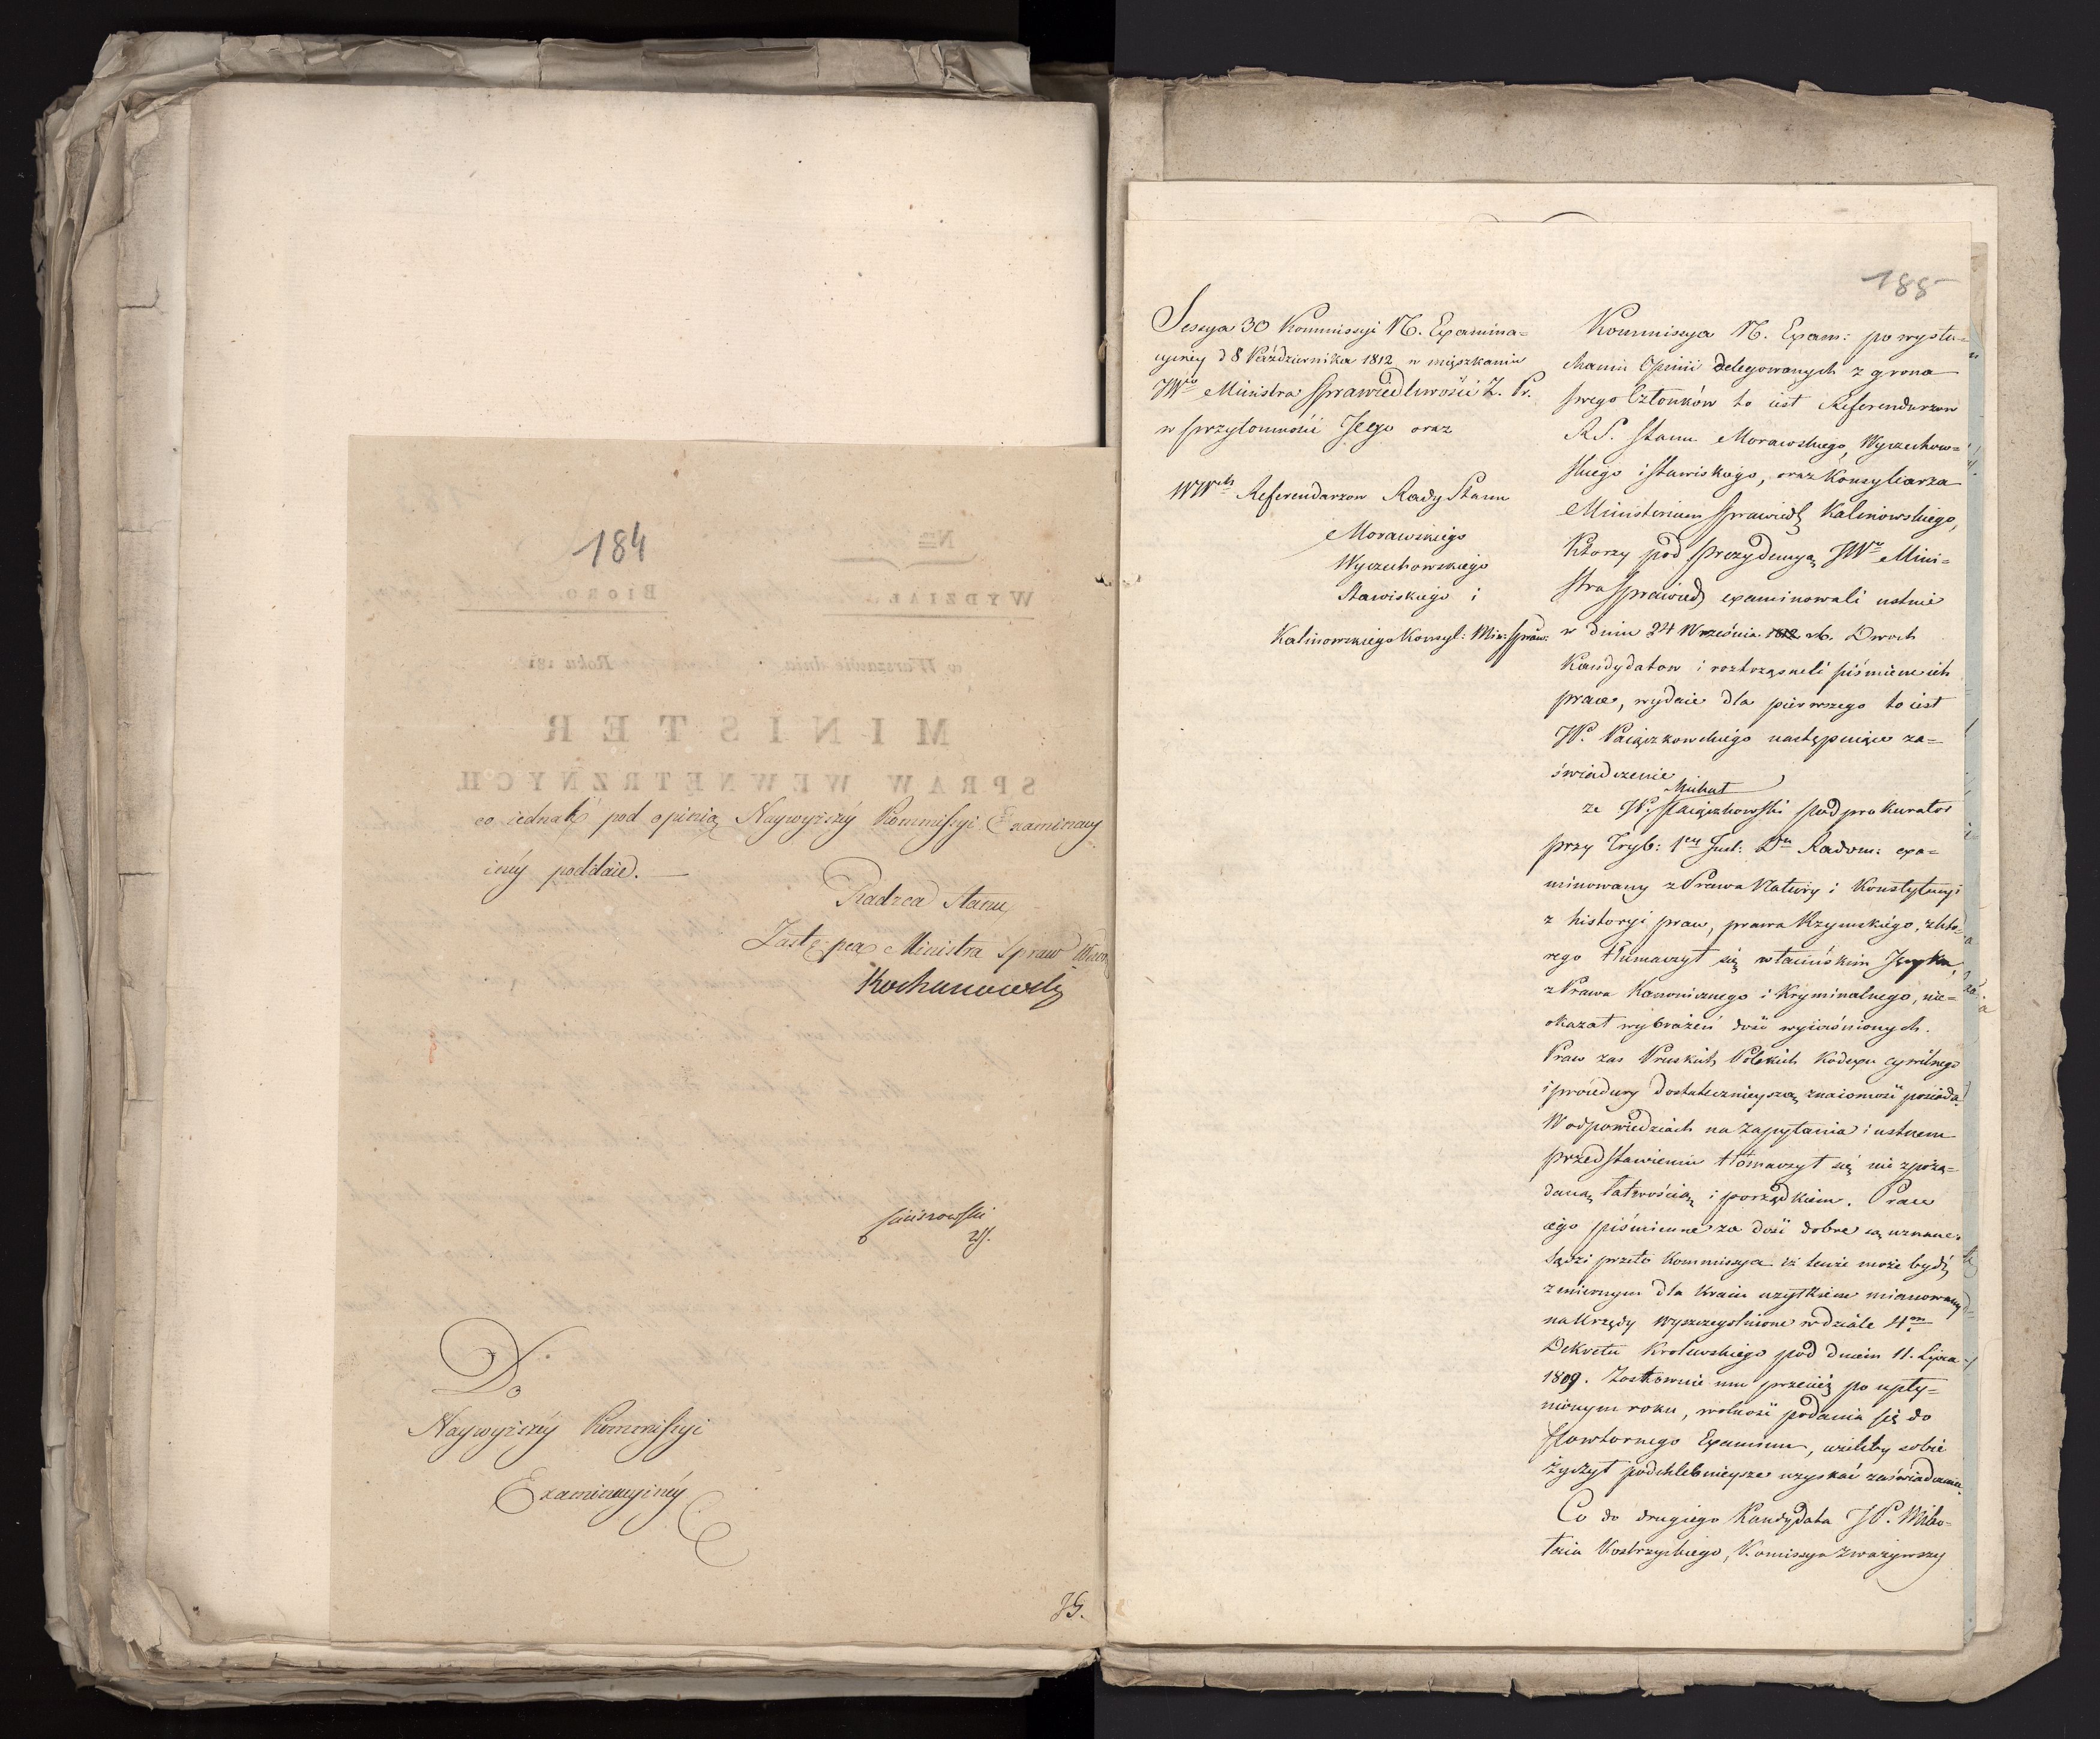 184
co iednak pod opinią Naywyższéy Kommissyi Examinacy
inéy poddaie. —
Radzca Stanu,
Zastępca Ministra Spraw Wewn
Kochanowski
Do
Naywyższéy Kommissyi
Examinacyinéy
JG.
185
Sessya 30 Kommissyi N. Examina=
cyinéy d 8 Października 1812 w mięszkaniu
JWgo Ministra Sprawiedliwości Z. Pr.
w przytomności Jego oraz
WWch Referendarzow Rady Stanu
Morawskiego
Wyczechowskiego
Stawiskiego i
Kalinowskiego Konsyl: Min: Spraw:
Kommissya N. Exam: po wysłu=
chaniu Opinii delegowanych z grona
swego Członków to iest Referendarzow
R S. Stanu Morawskiego, Wyczechow=
skiego i Stawiskiego, oraz Konsyliarza
Ministerium Sprawiedl Kalinowskiego,
Ktorzy pod prezydencyą JWo Mini=
stra Sprawied examinowali ustnie
w dniu 24 Września 1812 r. b. Dwoch
Kandydatow i roztrząsneli piśmienne ich
prace, wydaie dla pierwszego to iest
JP. Paiączkowskiego następuiące za=
świadczenie
Michał
ze JP. Paiączkowski Podprokurator
przy Tryb: 1ey Inst: Dtu Radom: exa=
minowany z Prawa Natury i Konstytucyi
z historyi praw, prawa Rzymskiego, z kto=
rego tłumaczył się w łacińskim Języku,
z Prawa Kanonicznego i Kryminalnego, nie=
okazał wyobrażeń dość wyiaśnionych.
Praw zas Pruskich, Polskich Kodexu cywilnego
i procedury dostatecznieyszą znaiomość posiada.
W odpowiedziach na zapytania i ustnem
przedstawieniu tłómaczył się nie z pożą=
daną łatwością i porządkiem. Prace
iego piśmienne za dość dobre są uznane.
Sądzi przeto Kommissya iż tenże może bydź
z miernym dla Kraiu użytkiem mianowany
na Urzędy wyszczegulnione w dziale 4m
Dekretu Krolewskiego pod dniem 11. Lipca
1809. Zostawuie mu przecież po upły=
nionym roku, wolność podania się do
Powtornego Examinu, ieżeliby sobie
życzył podchlebnieysze uzyskać zaświadczenie.
Co do drugiego Kandydata JP. Miko=
łaia Kostrzyckiego, Komissya zważywszy